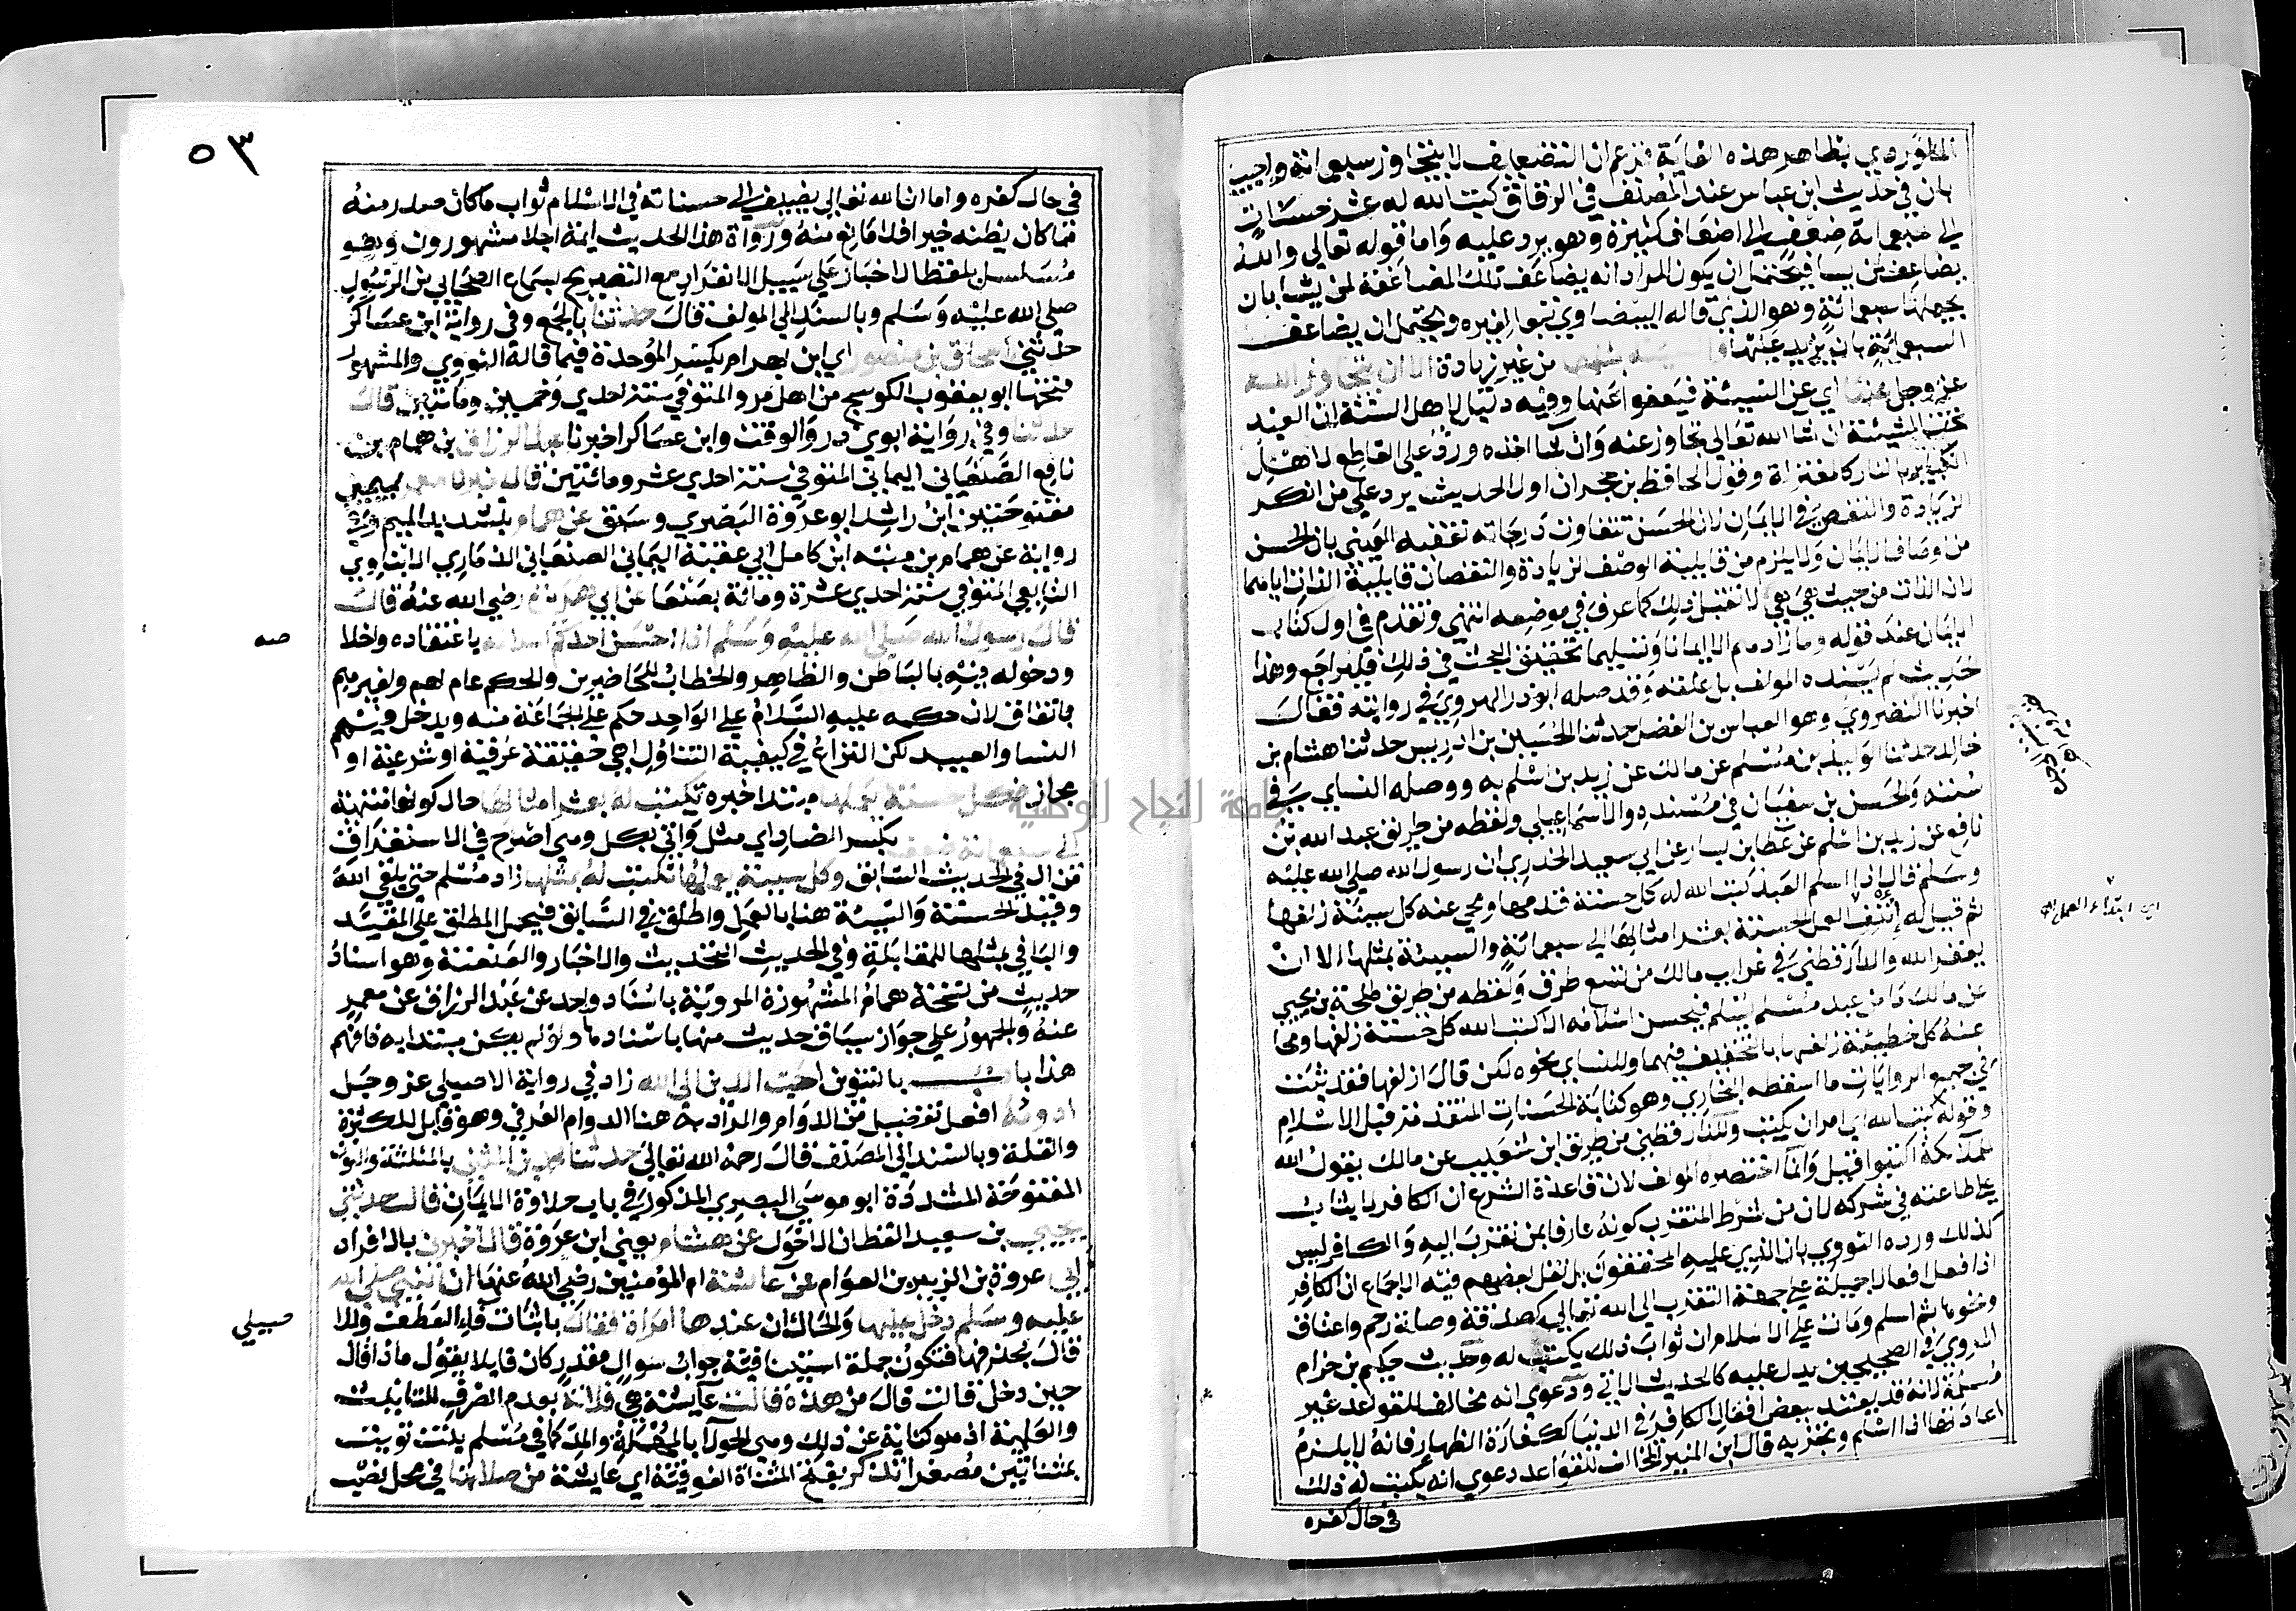 الماوردي بظاهر هذه الغاية فزعم ان التضعيف لا يتجاوز سبعمائة واجيب
بان في حديث ابن عباس عند المصنف في الرقاق كتب الله له عشر حسنات
الى سبعمائة ضعف الى اضعاف كثيرة وهو يرد عليه واما قوله تعالى والله
يضاعف لمن يشا فيحتمل ان يكون المراد انه يضاعف تلك المضاعفة لمن يشا بان
يجعلها سبعمائة وهو الذي قاله البيضاوي تبعا لغيره ويحتمل ان يضاعف
السبعمائة بان يزيد عليها والسيئة بمثلها من غير زيادة الا ان يتجاوز الله
عز وجل عنها اي عن السيئة فيعفو عنها وفيه دليل لاهل السنة ان العبد
تحت المشيئة ان شا الله تعالى تجاوز عنه وان شا اخذه ورد على القاطع لاهل
الكبائر بالنار كالمعتزلة وقول الحافظ بن حجر ان اول الحديث يرد على من انكر
الزيادة والنقص في الايمان لان الحسن تتفاوت درجاته تعقبه العيني بان الحسن
من اوصاف الايمان ولا يلزم من قابلية الوصف الزيادة والنقصان قابلية الذات اياهما
لان الذات من حيث هي هي لا تقبل ذلك كما عرف في موضعه انتهى وتقدم في اول كتاب
الايمان عند قوله وما زادهم الا ايمانا وتسليما تحقيق البحث في ذلك فليراجع وهذا
حديث لم يسنده المولف بل علقه وقد وصله ابو ذر الهروي في روايته فقال
اخبرنا النضروي وهو العباس بن الفضل حدثنا الحسين بن ادريس حدثنا هشام بن
خالد حدثنا الوليد بن مسلم عن مالك عن زيد بن اسلم به ووصله النساي في
سننه والحسن بن سفيان في مسنده والاسماعيلي ولفظه من طريق عبد الله بن
نافع عن زيد بن اسلم عن عطا بن يسار عن ابي سعيد الخدري ان رسول الله صلى الله عليه
وسلم قال اذا اسلم العبد كتب الله له كل حسنة قدمها ومحي عنه كل سيئة زلفها
ثم قيل له ائتنف العمل الحسنة بعشر امثالها الى سبعمائة والسيئة بمثلها الا ان
يغفر الله والدارقطني في غرايب مالك من تسع طرق ولفظه من طريق طلحة بن يحيى
عن مالك ما من عبد مسلم يسلم فيحسن اسلامه الا كتب الله كل حسنة زلفها ومحا
عنه كل خطيئة زلفها بالتخفيف فيهما وللنساي نحوه لكن قال ازلفها فقد ثبت
في جميع الروايات ما اسقطه البخاري وهو كتابة الحسنات المتقدمة قبل الاسلام
وقوله كتب الله اي امر ان يكتب وللدارقطني من طريق ابن شعيب عن مالك يقول الله
لملائكته اكتبوا قيل وانما اختصره المولف لان قاعدة الشرع ان الكافر لا يثاب
على طاعته في شركه لان من شرط المتقرب كونه عارفا بمن تقرب اليه والكافر ليس
كذلك ورده النووي بان الذي عليه المحققون بل نقل بعضهم فيه الاجماع ان الكافر
اذا فعل افعالا جميلة على جهة التقرب الى الله تعالى كصدقة وصلة رحم واعتاق
ونحوها ثم اسلم ومات على الاسلام ان ثواب ذلك يكتب له وحديث حكيم بن حزام
المروي في الصحيحين يدل عليه كالحديث الاتي ودعوى انه مخالف للقواعد غير
مسلمة لانه قد يعتد ببعض افعال الكافر في الدنيا ككفارة الظهار فانه لا يلزم
اعادتها اذا اسلم وتجزيه قال ابن المنير المخالف للقواعد دعوى انه يكتب له ذلك
في حال كفره
اي ابتداء العمل
٥٣
في حال كفره واما ان الله تعالى يضيف الى حسناته في الاسلام ثواب ما كان صدر منه
مما كان يظنه خيرا فلا مانع منه ورواة هذا الحديث ايمة اجلا مشهورون وهو
مسلسل بلفظ الاخبار على سبيل الانفراد مع التصريح بسماع الصحابي من الرسول
صلى الله عليه وسلم وبالسند الى المولف قال حدثنا بالجمع وفي رواية ابن عساكر
حدثني اسحاق بن منصور اي ابن بهرام بكسر الموحدة فيما قاله النووي والمشهور
فتحها ابو يعقوب الكوسج من اهل مرو المتوفي سنة احدي وخمسين ومائتين قال
حدثنا وفي رواية ابوي ذر والوقت وابن عساكر اخبرنا عبد الرزاق بن همام بن
نافع الصنعاني اليماني المتوفي سنة احدي عشر ومائتين قال اخبرنا معمر بميمين
مفتوحتين ابن راشد ابو عروة البصري وسبق عن همام بتشديد الميم وفي
رواية عن همام بن منبه ابن كامل ابي عقبة اليماني الصنعاني الذماري الابناوي
التابعي المتوفي سنة احدي عشرة ومائة بصنعا عن ابي هريرة رضي الله عنه قال
قال رسول الله صلى الله عليه وسلم اذا احسن احدكم اسلامه باعتقاده واخلا
صه
ودخوله فيه بالباطن والظاهر والخطاب للحاضرين والحكم عام لهم ولغيرهم
باتفاق لان حكمه عليه السلام على الواحد حكم على الجماعة منه ويدخل فيهم
النسا والعبيد لكن النزاع في كيفية التناول اهي حقيقة عرفية او شرعية او
مجاز فكل حسنة يعملها مبتدا خبره تكتب له بعشر امثالها حال كونها منتهية
الى سبعمائة ضعف بكسر الضاد اي مثل واتى بكل وهي اصرح في الاستغراق
من ال في الحديث السابق وكل سيئة يعملها تكتب له بمثلها زاد مسلم حتى يلقى الله
وقيد الحسنة والسيئة هنا بالعمل واطلق في السابق فيحمل المطلق على المقيد
والبا في بمثلها للمقابلة وفي الحديث التحديث والاخبار والعنعنة وهو اسناد
حديث من نسخة همام المشهورة المروية باسناد واحد عن عبد الرزاق عن معمر
عنه والجمهور على جواز سياق حديث منها باسنادها ولو لم يكن مبتدا به فافهم
هذا باب بالتنوين احب الدين الى الله زاد في رواية الاصيلي عز وجل
ادومه افعل تفضيل من الدوام والمراد به هنا الدوام العرفي وهو قابل للكثرة
والقلة وبالسند الى المصنف قال رحمه الله تعالى حدثنا محمد بن المثنى بالمثلثة والنون
المفتوحة المشددة ابو موسى البصري المذكور في باب حلاوة الايمان قال حدثني
يحيى بن سعيد القطان الاحول عن هشام يعني ابن عروة قال اخبرني بالافراد
ابي عروة بن الزبير بن العوام عن عائشة ام المؤمنين رضي الله عنها ان النبي صلى الله
عليه وسلم دخل عليها والحال ان عندها امراة فقال باثبات فاء العطف وللا
صيلي
قال بحذفها فتكون جملة استينافية جواب سوال مقدر كان قايلا يقول ماذا قال
حين دخل قالت قال من هذه قالت عايشة هي فلانة بعدم الصرف للتانيث
والعلمية اذ هو كناية عن ذلك وهي الحولا بالمهملة والمد كما في مسلم بنت تويت
بمثناتين مصغرا تذكر بفتح المثناة الفوقية اي عايشة من صلاتها في محل نصب
جامعة النجاح الوطنية